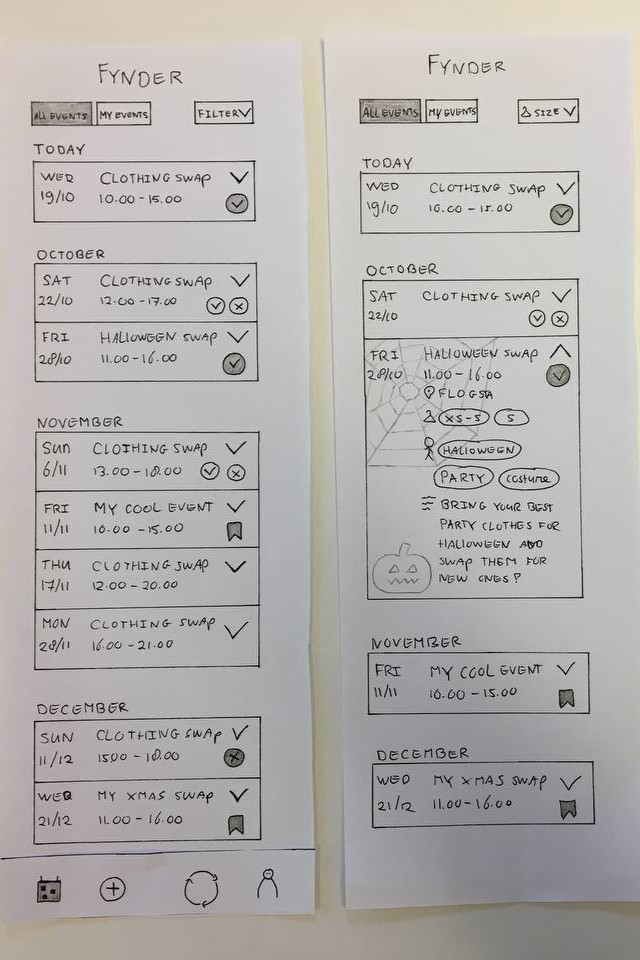 FYNDER
ALL EVENTS MY EVENTS FILTER
TODAY
WED CLOTHING SWAP
19/10 10.00-15.00
OCTOBER
SAT CLOTHING SWAP
22/10 12.00-17.00
FRI HALLOWEEN SWAP
28/10 11.00-16.00
NOVEMBER
SUN CLOTHING SWAP
6/11 13.00-18.00
FRI MY COOL EVENT
11/11 10.00-15.00
THU CLOTHING SWAP
17/11 12.00-20.00
MON CLOTHING SWAP
28/11 16.00-21.00
DECEMBER
SUN CLOTHING SWAP
11/12 1500-18.00
WED MY XMAS SWAP
21/12 11.00-16.00
FYNDER
ALL EVENTS MY EVENTS SIZE
TODAY
WED CLOTHING SWAP
19/10 10.00-15.00
OCTOBER
SAT CLOTHING SWAP
22/10
FRI HALLOWEEN SWAP
28/10 11.00-16.00
FLOGSTA
XS-S S
HALLOWEEN
PARTY costume
BRING YOUR BEST
PARTY CLOTHES FOR
HALLOWEEN AND
SWAP THEM FOR
NEW ONES?
NOVEMBER
FRI MY COOL EVENT
11/11 10.00-15.00
DECEMBER
WED MY XMAS SWAP
21/12 11.00-16.00